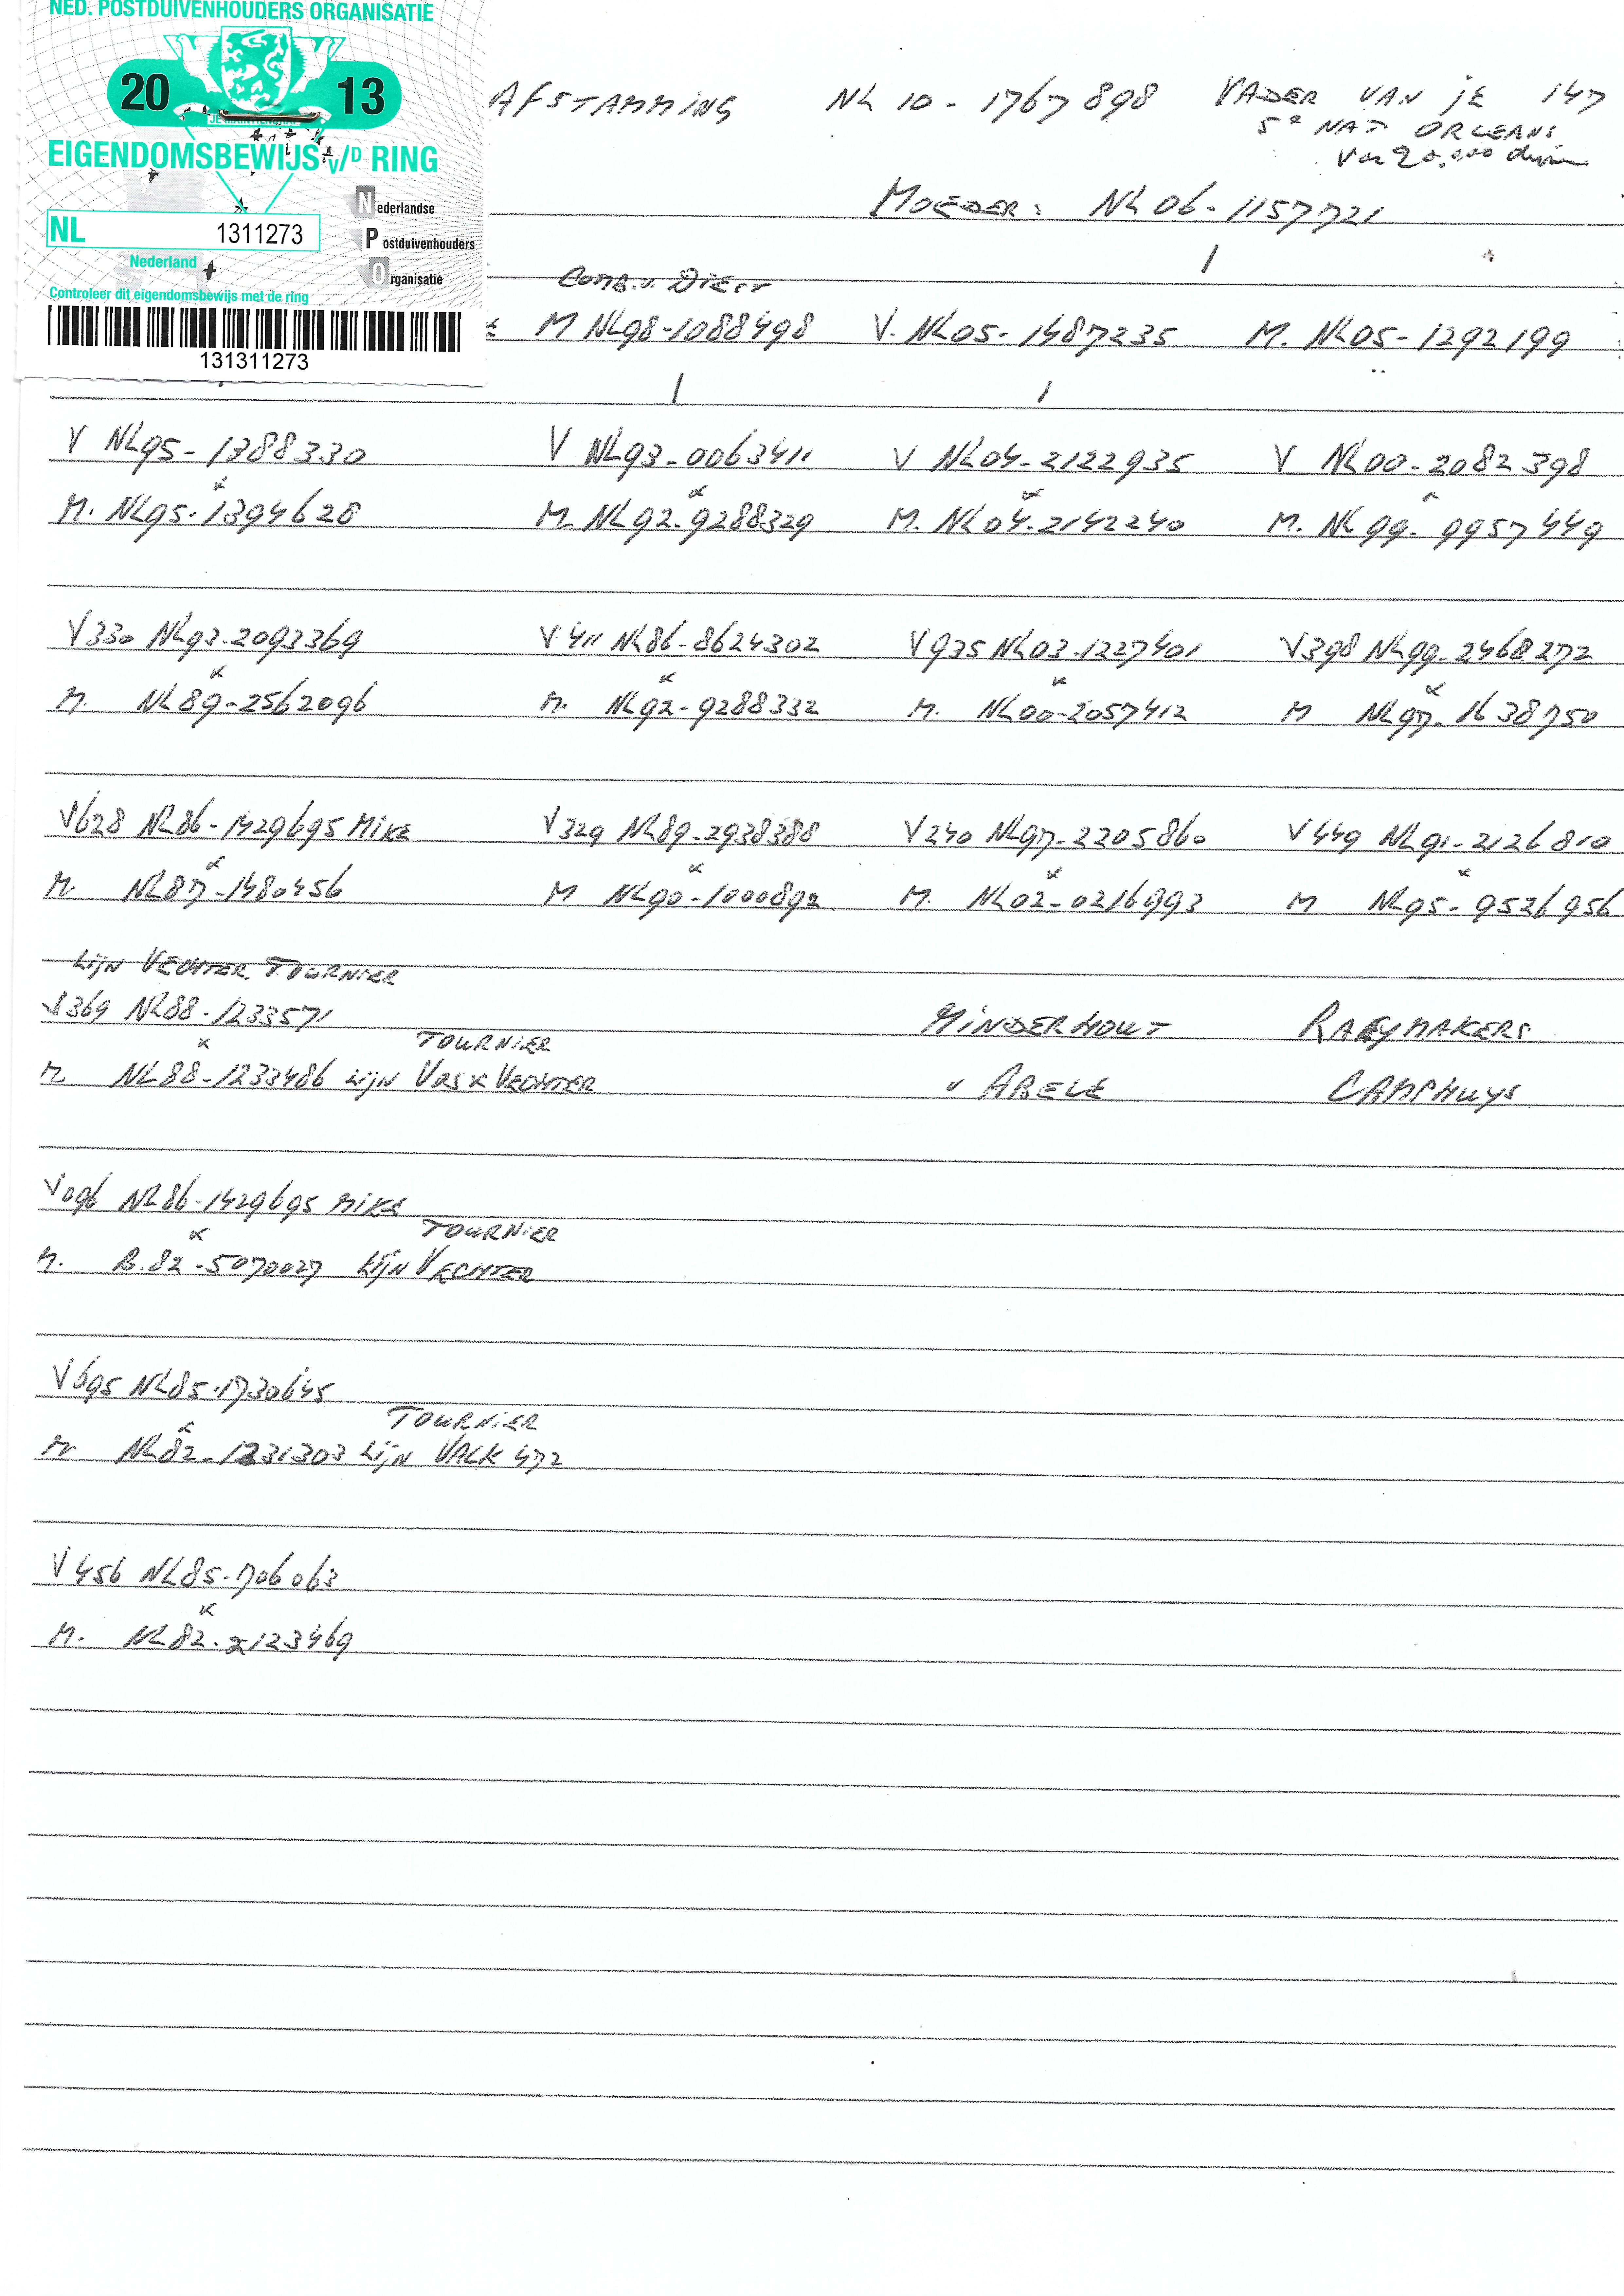 NED. POSTDUIVENHOUDERS ORGANISATIE
20 13
EIGENDOMSBEWIJS V/D RING
Nederlandse
Postduivenhouders
Organisatie
NL 1311273
Nederland
Controleer dit eigendomsbewijs met de ring
131311273
AFSTAMMING NL 10 - 1767898 VADER VAN JE 147
5e NAT ORLEANS
20.000
MOEDER: NL 06 - 1157721
M NL98-1088498 V. NL05-1487235 M. NL05-1292199
V NL95-1388330 V NL93-0063411 V NL04-2122935 V NL00-2082398
x x x x
M. NL95-1394628 M. NL92-9288329 M. NL04-2142240 M. NL99-9957449
V330 NL93-2093369 V411 NL86-8624302 V935 NL03-1227401 V398 NL99-2468272
x x x x
M. NL89-2562096 M. NL92-9288332 M. NL00-2057412 M NL97-1638750
V628 NL86-1429695 MIKE V329 NL89-2938388 V240 NL97-2205860 V449 NL91-2126810
x x x x
M NL87-1480456 M NL90-1000892 M. NL02-0216993 M NL95-9526956
LIJN VECHTER TOURNIER
V369 NL88-1233571 MINDERHOUT RAEYMAKERS
x TOURNIER
M NL88-1233486 LIJN VOS x VECHTER v ABELE CAMPHUYS
V096 NL86-1429695 MIKE
x TOURNIER
M. B.82-5070027 LIJN VECHTER
V695 NL85-1730645
x TOURNIER
M NL82-1231303 LIJN VALK 472
V456 NL85-706063
x
M. NL82-2123469